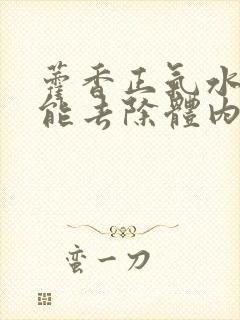 藿香正氣水
能去除體內
蛮一刀